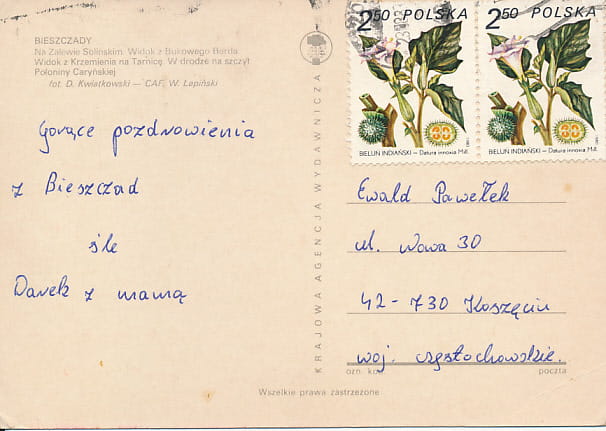 BIESZCZADY
Na Zalewie Solińskim. Widok z Bukowego Berda
Widok z Krzemienia na Tarnicę. W drodze na szczyt
Połoniny Caryńskiej
fot. D. Kwiatkowski — CAF, W. Łapiński
Gorące pozdrowienia
z Bieszczad
śle
Darek z mamą
KRAJOWA AGENCJA WYDAWNICZA
2.50 POLSKA
BIELUŃ INDIAŃSKI — Datura innoxia Mill.
2.50 POLSKA
BIELUŃ INDIAŃSKI — Datura innoxia Mill.
Ewald Pawełek
ul. Nowa 30
42-730 Koszęcin
woj. częstochowskie.
ozn. kod poczta
Wszelkie prawa zastrzeżone